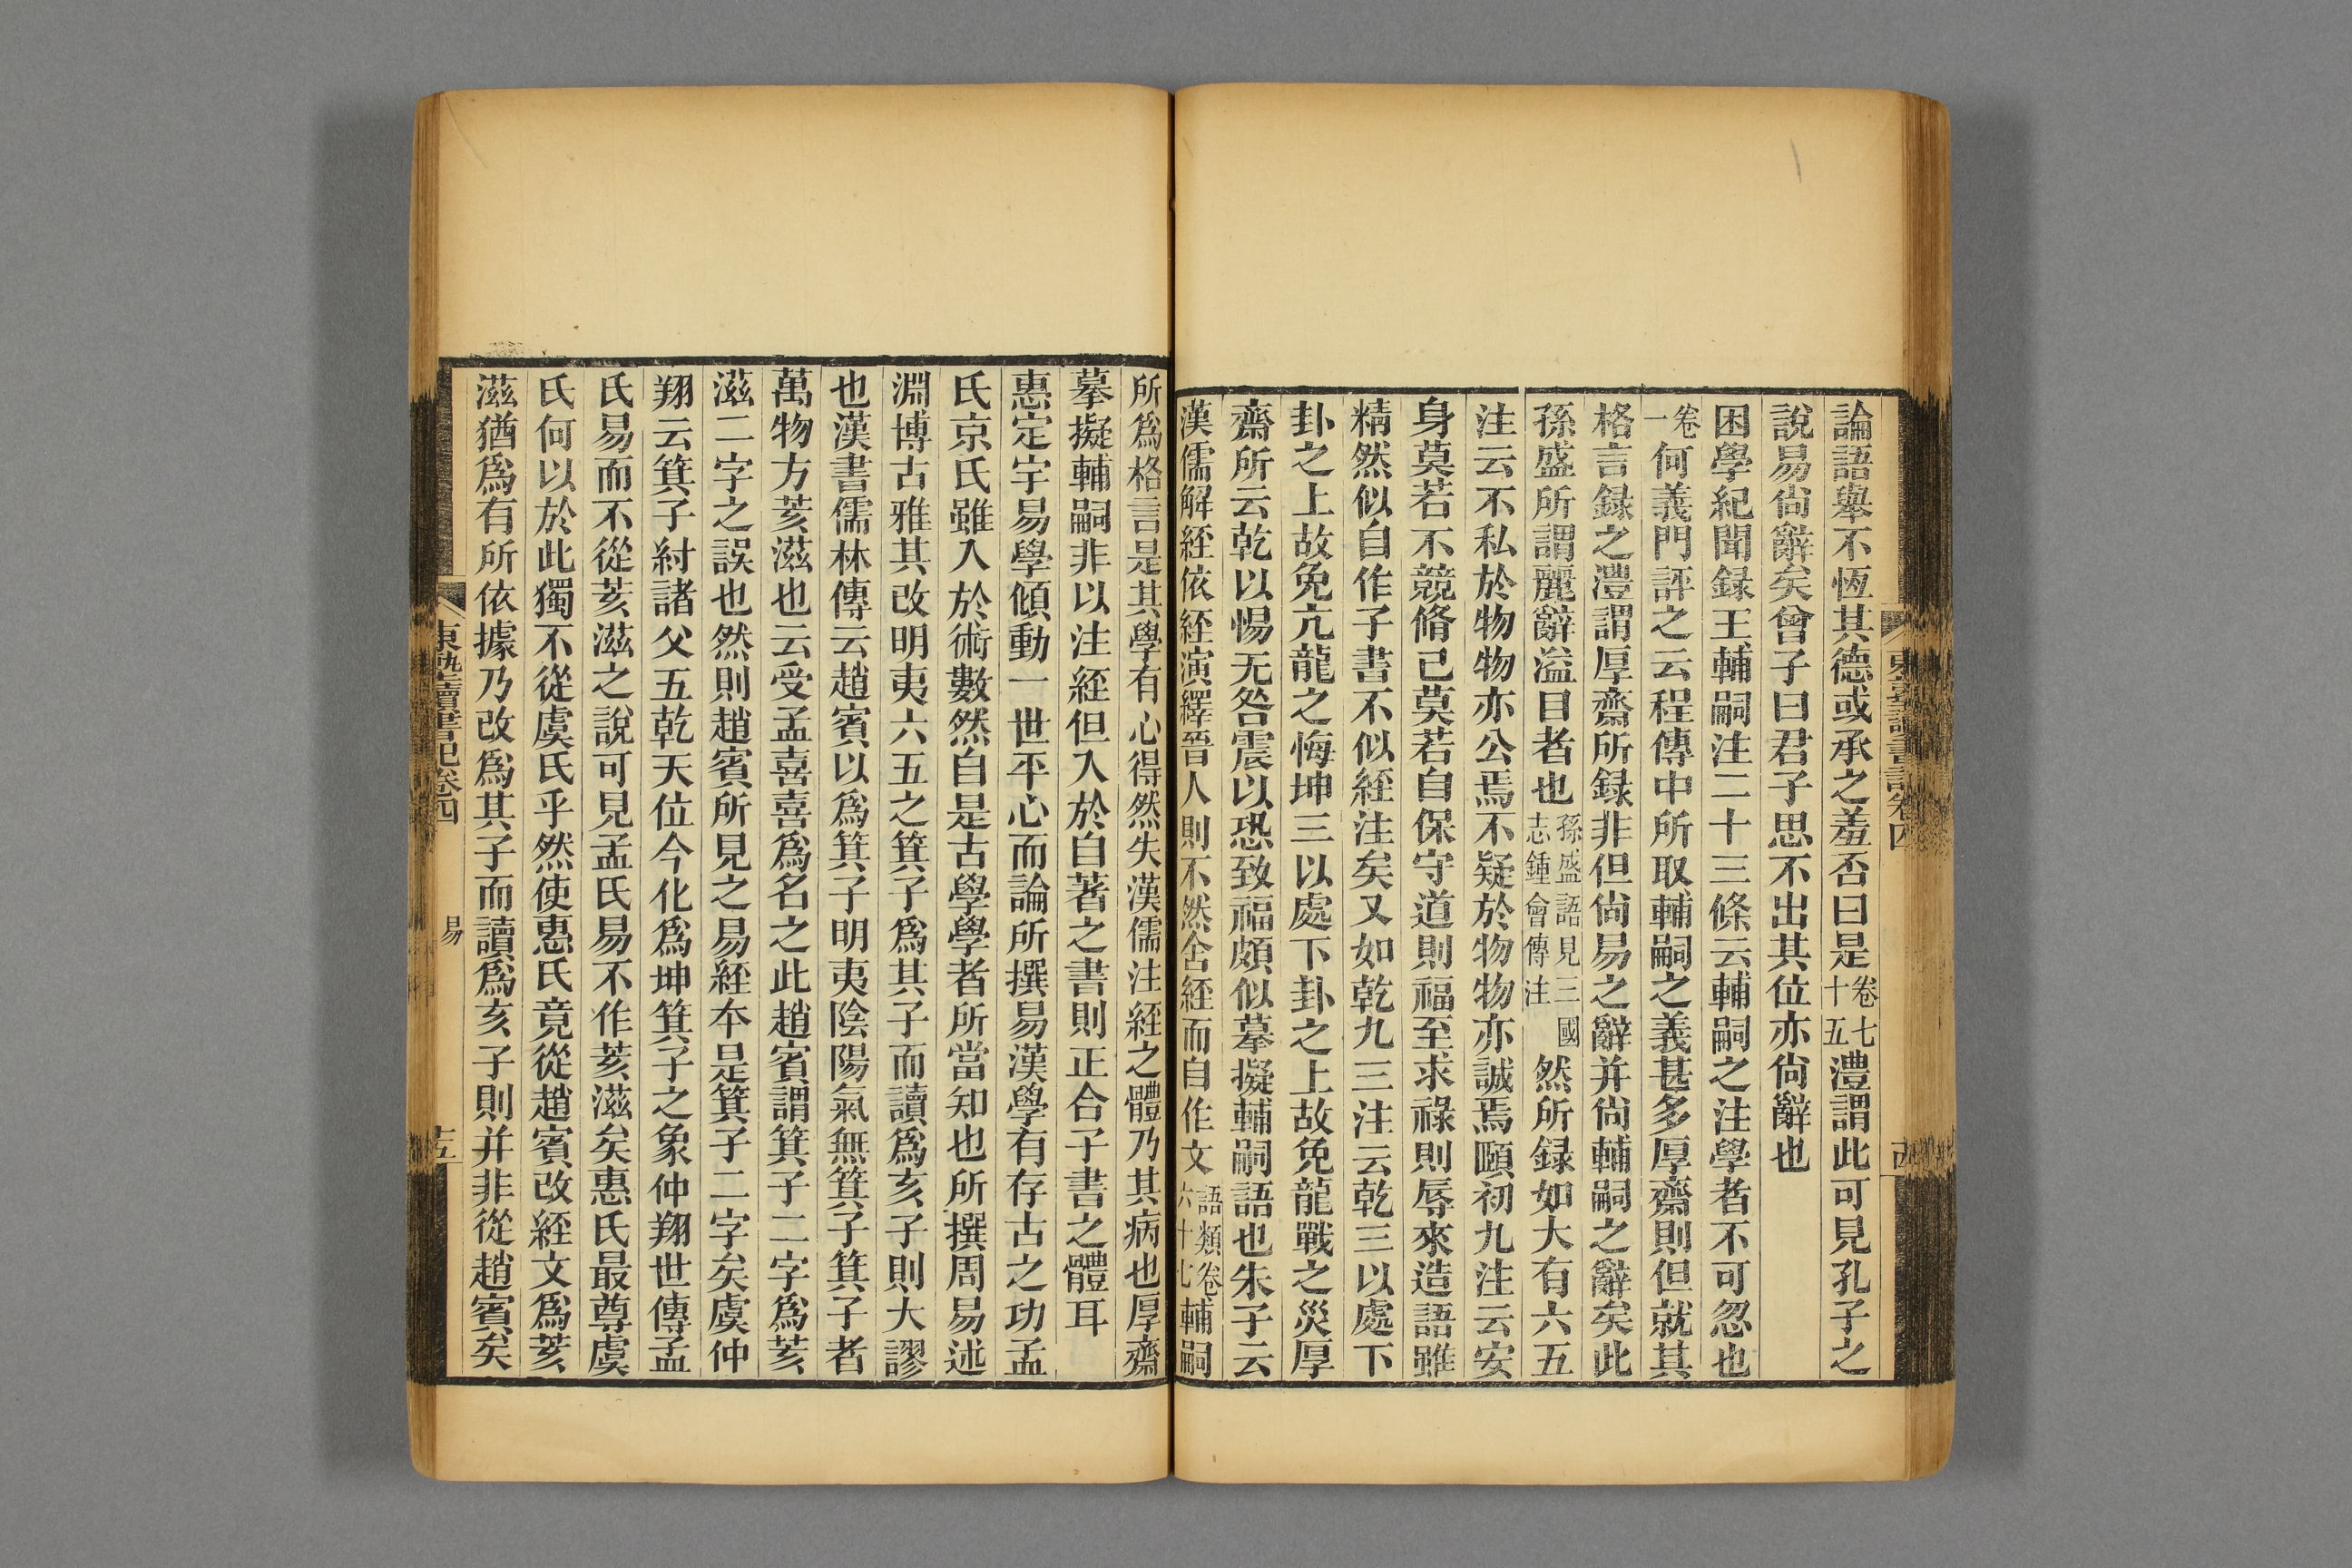 論語舉不恆其德或承之羞否曰是卷七十五澧謂此可見孔子之
說易尙辭矣曾子曰君子思不出其位亦尙辭也
困學紀聞録王輔嗣注二十三條云輔嗣之注學者不可忽也
卷一何義門評之云程傳中所取輔嗣之義甚多厚齋則但就其
格言録之澧謂厚齋所録非但尙易之辭并尙輔嗣之辭矣此
孫盛所謂麗辭溢目者也孫盛語見三國志鍾會傳注然所録如大有六五
注云不私於物物亦公焉不疑於物物亦誠焉頤初九注云安
身莫若不競脩己莫若自保守道則福至求祿則辱來造語雖
精然似自作子書不似經注矣又如乾九三注云乾三以處下
卦之上故免亢龍之悔坤三以處下卦之上故免龍戰之災厚
齋所云乾以惕无咎震以恐致福頗似摹擬輔嗣語也朱子云
漢儒解經依經演繹晉人則不然舍經而自作文語類卷六十七輔嗣
所爲格言是其學有心得然失漢儒注經之體乃其病也厚齋
摹擬輔嗣非以注經但入於自著之書則正合子書之體耳
惠定宇易學傾動一世平心而論所撰易漢學有存古之功孟
氏京氏雖入於術數然自是古學學者所當知也所撰周易述
淵博古雅其改明夷六五之箕子爲其子而讀爲亥子則大謬
也漢書儒林傳云趙賓以爲箕子明夷陰陽氣無箕子箕子者
萬物方荄滋也云受孟喜喜爲名之此趙賓謂箕子二字爲荄
滋二字之誤也然則趙賓所見之易經本是箕子二字矣虞仲
翔云箕子紂諸父五乾天位今化爲坤箕子之象仲翔世傳孟
氏易而不從荄滋之說可見孟氏易不作荄滋矣惠氏最尊虞
氏何以於此獨不從虞氏乎然使惠氏竟從趙賓改經文爲荄
滋猶爲有所依據乃改爲其子而讀爲亥子則并非從趙賓矣
東塾讀書記卷四
易
十五